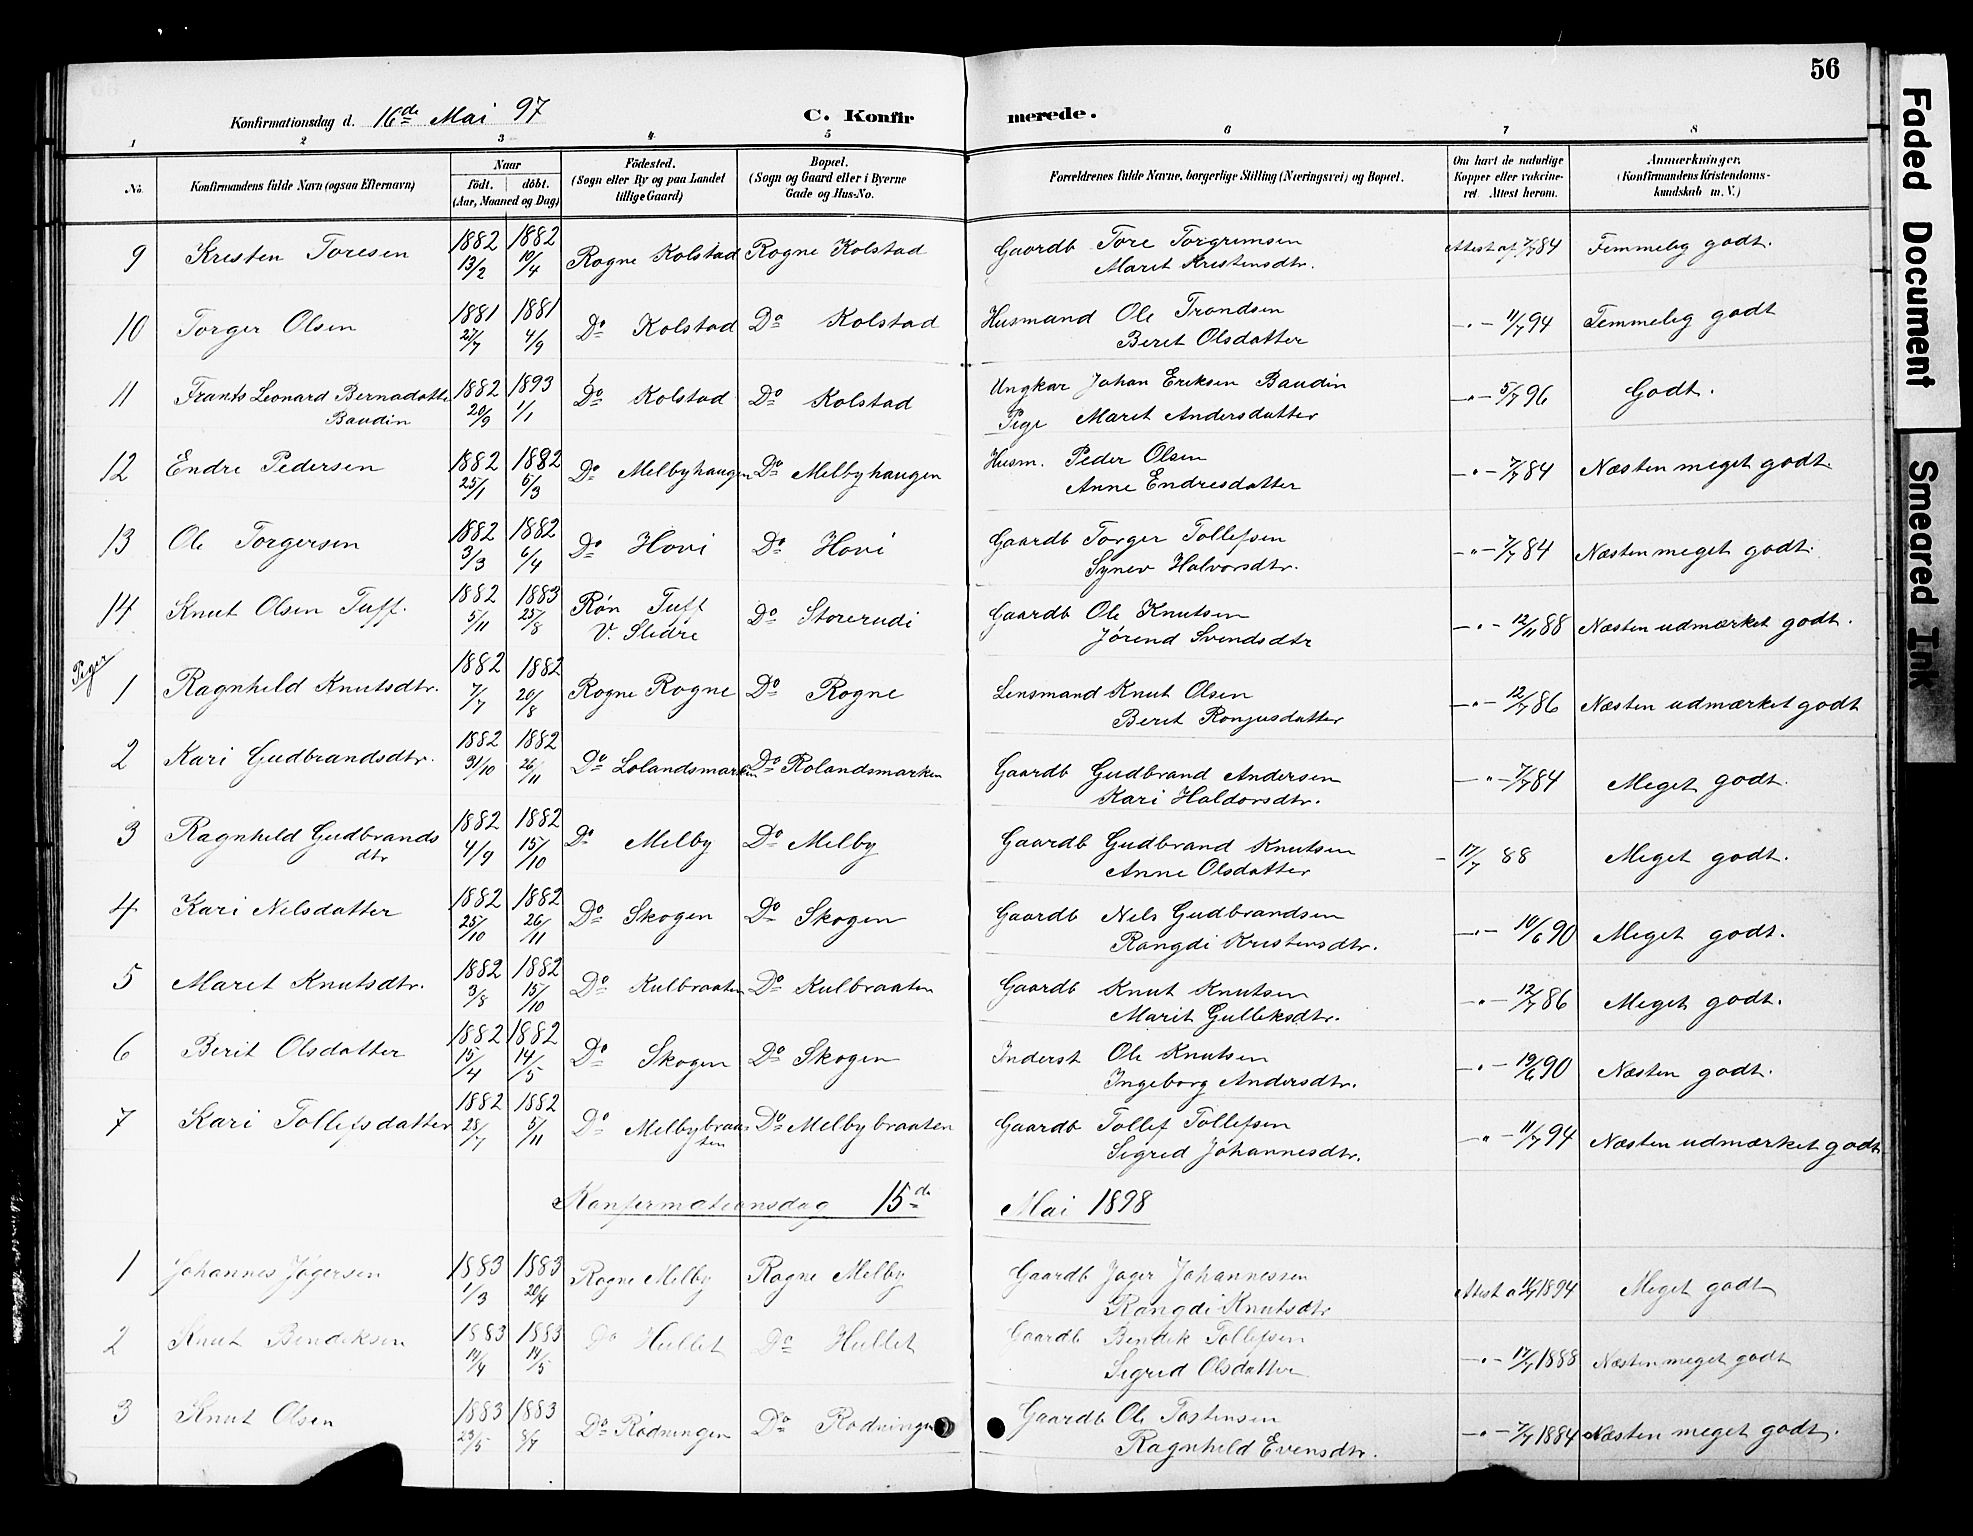 56
Konfirmationsdag d. 16de Mai 97 C. Konfir merede.
1 2 3 4 5 6 7 8
No. Konfirmandens fulde Navn (ogsaa Efternavn) Naar født. døbt. (Aar, Maaned og Dag) Fødested. (Sogn eller By og paa Landet tillige Gaard) Bopæl. (Sogn og Gaard eller i Byerne Gade og Hus-No. Forældrenes fulde Navne, borgerlige Stilling (Næringsvei) og Bopæl. Om havt de naturlige Kopper eller vakcineret. Attest herom. Anmærkninger. (Konfirmandens Kristendomskundskab m. V.)
9 Kristen Toresen 1882 13/2 1882 10/4 Rogne Kolstad Rogne Kolstad Gaardb Tore Torgrimsen Attest af 7/7 84 Temmelig godt.
Marit Kristensdtr.
10 Torger Olsen 1881 27/7 1881 4/9 Do Kolstad Do Kolstad Husmand Ole Trondsen -"- 11/7 94 Temmelig godt
Berit Olsdatter
11 Frants Leonard Bernadotte 1882 20/9 1893 1/1 Do Kolstad Do Kolstad Ungkar Johan Eriksen Baudin -"- 5/7 96 Godt.
Baudin Pige Marit Andersdatter
12 Endre Pedersen 1882 25/1 1882 5/3 Do Melbyhaugen Do Melbyhaugen Husm. Peder Olsen -"- 7/7 84 Næsten meget godt.
Anne Endresdatter
13 Ole Torgersen 1882 3/3 1882 6/4 Do Hovi Do Hovi Gaardb Torger Tollefsen -"- 7/7 84 Næsten meget godt.
Synev Halvorsdtr.
14 Knut Olsen Tuff. 1882 5/11 1883 25/8 Røn Tuff Do Storerudi Gaardb Ole Knutsen -"- 12/11 88 Næsten udmærket godt.
V. Slidre Jørend Svendsdtr
Piger
1 Ragnhild Knutsdtr. 1882 7/7 1882 20/8 Rogne Rogne Do Rogne Lensmand Knut Olsen -"- 12/7 86 Næsten udmærket godt
Berit Ronjusdatter
2 Kari Gudbrandsdtr. 1882 31/10 1882 26/11 Do Lolandsmarken Do Rolandsmarken Gaardb Gudbrand Andersen -"- 7/7 84 Meget godt.
Kari Haldorsdtr.
3 Ragnhild Gudbrands 1882 4/9 1882 15/10 Do Melby Do Melby Gaardb Gudbrand Knutsen - 17/7 88 Meget godt.
dtr Anne Olsdatter
4 Kari Nelsdatter 1882 25/10 1882 26/11 Do Skogen Do Skogen Gaardb Nels Gudbrandsen -"- 10/6 90 Meget godt.
Rangdi Kristensdtr.
5 Marit Knutsdtr. 1882 3/8 1882 15/10 Do Kulbraaten Do Kulbraaten Gaardb Knut Knutsen -"- 12/7 86 Meget godt.
Marit Gulleksdtr.
6 Berit Olsdatter 1882 15/4 1882 14/5 Do Skogen Do Skogen Inderst Ole Knutsen -"- 19/6 90 Næsten godt.
Ingeborg Andersdtr.
7 Kari Tollefsdatter 1882 1882 5/11 Do Melbybraaten Do Melbybraaten Gaardb Tollef Tollefsen -"- 11/7 94 Næsten udmærket godt
Sigrid Johannesdtr.
Konfirmationsdag 15de Mai 1898
1 Johannes Jøgersen 1883 1/3 1883 Rogne Melby Rogne Melby Gaardb Jøger Johannessen Attest a 1894 Meget godt
Rangdi Knutsdtr
2 Knut Bendiksen 1883 1883 14/5 Do Hullet Do Hullet Gaardb Bendik Tollefsen -"- 17/7 1888 Næsten meget godt
Sigrid Olsdatter
3 Knut Olsen 1883 23/5 1883 8/7 Do Rødningen Do Rødningen Gaardb Ole Tostensen -"- 7/7 1884 Næsten meget godt.
Ragnhild Evensdtr.
Faded Document
Smeared Ink